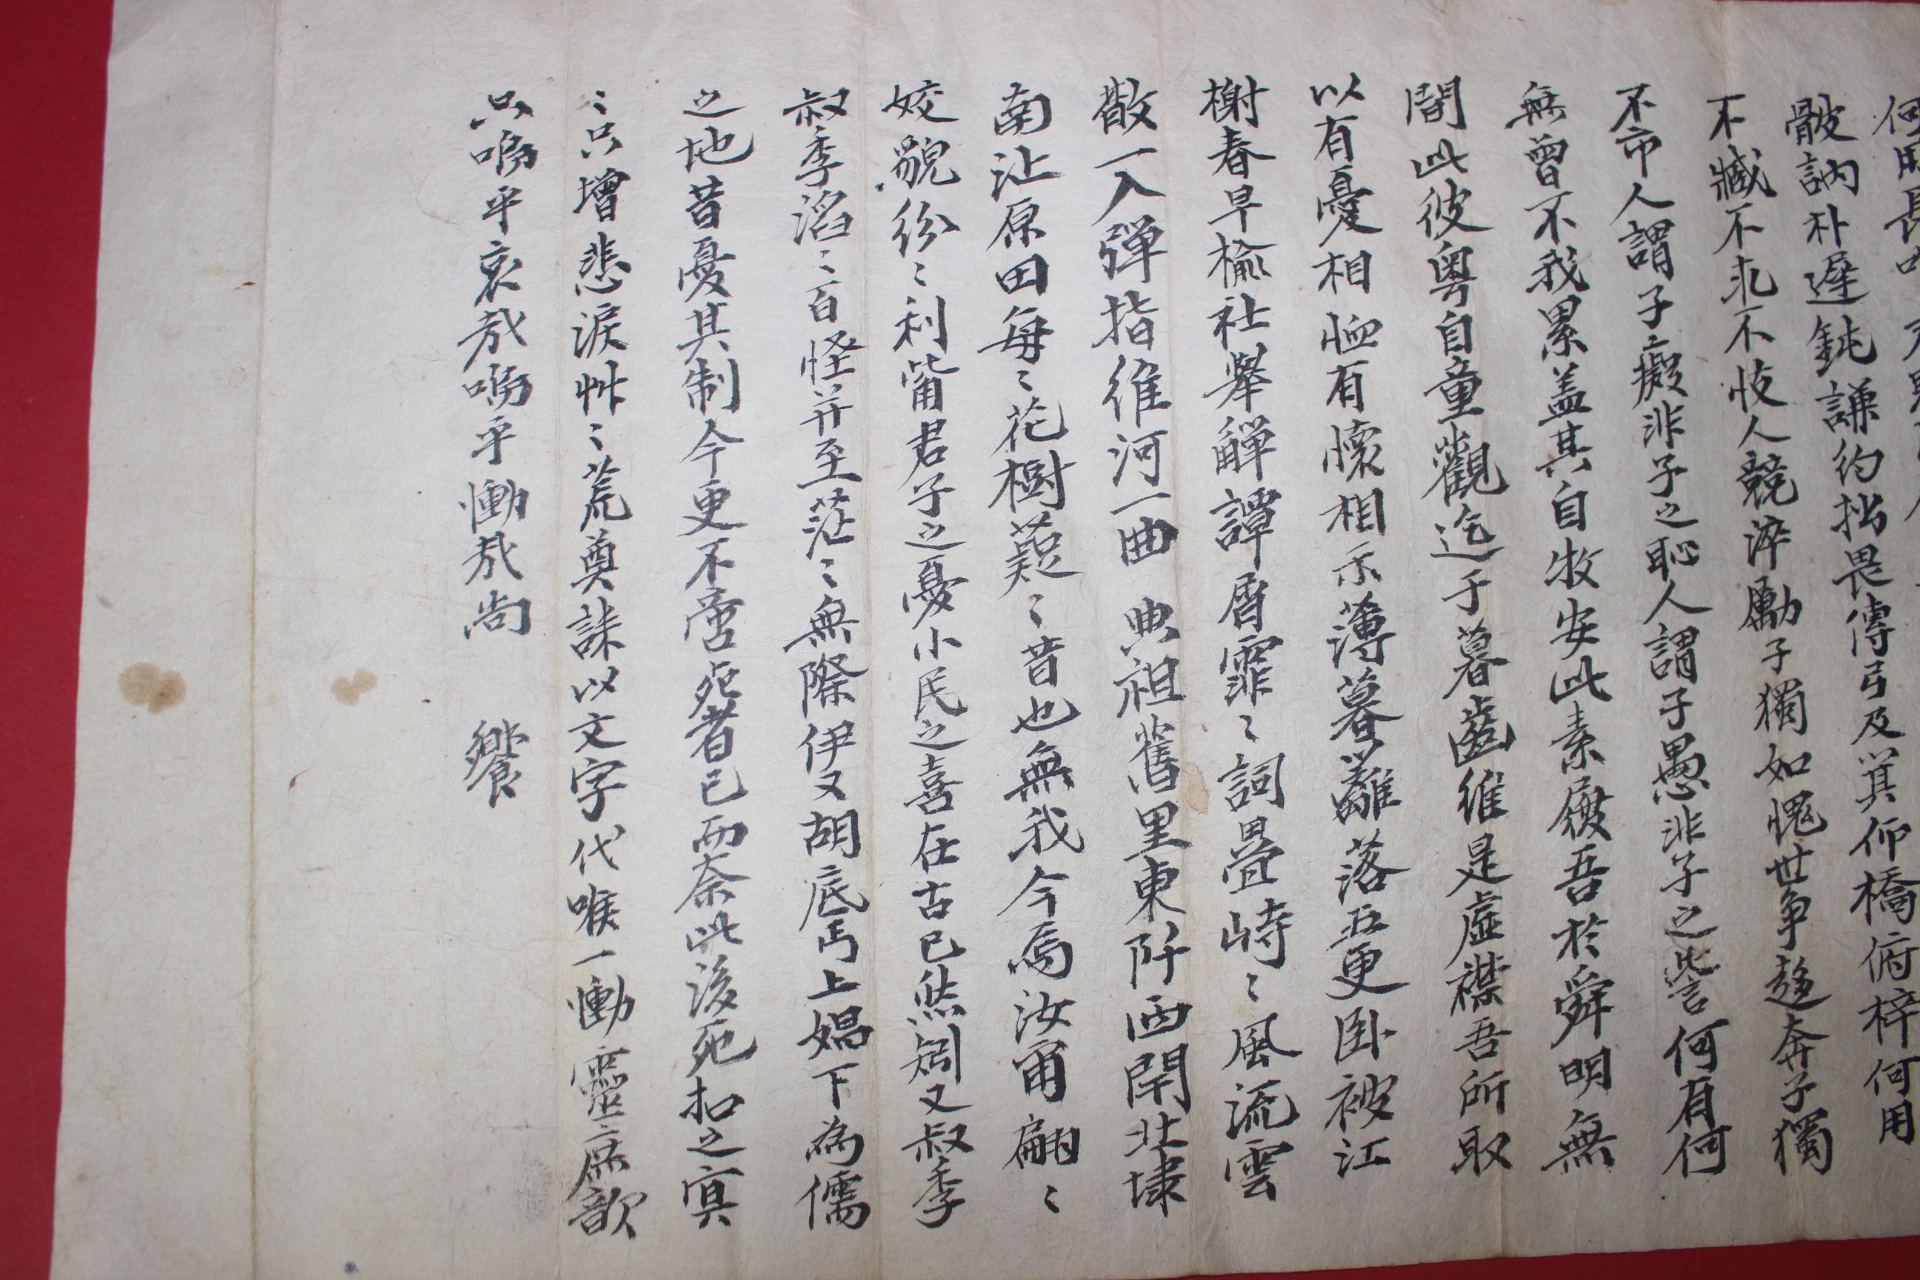 骸訥朴遲鈍謙約拙畏傳弓及箕仰橋俯梓何用
不臧不求不忮人競淬勵子獨如愧世争趍奔子獨
不市人謂子癡非子之恥人謂子愚非子之訾何有何
無曾不我累盖其自牧安此素履吾於舜明無
間此彼粤自童觀迄于暮齒維是虛襟吾所取
以有憂相恤有懷相示薄暮籬落五更臥被江
榭春早楡社擧觶譚屑霏〻詞疊峙〻風流雲
散一入彈指維河一曲典祖舊里東阡西閈北埭
南沚原田每〻花樹薿〻昔也無我今焉汝甭翩〻
姣貌份〻利觜君子之憂小民之喜在古已然矧又叔季
叔季滔〻百怪並至茫〻無際伊又胡底丐上娼下為儒
之地昔憂其制今更不啻死者已而奈此後死扣之冥
〻只增悲淚艸〻荒奠誄以文字代喉一慟靈庶歆
只嗚乎哀哉嗚乎慟哉尚　饗